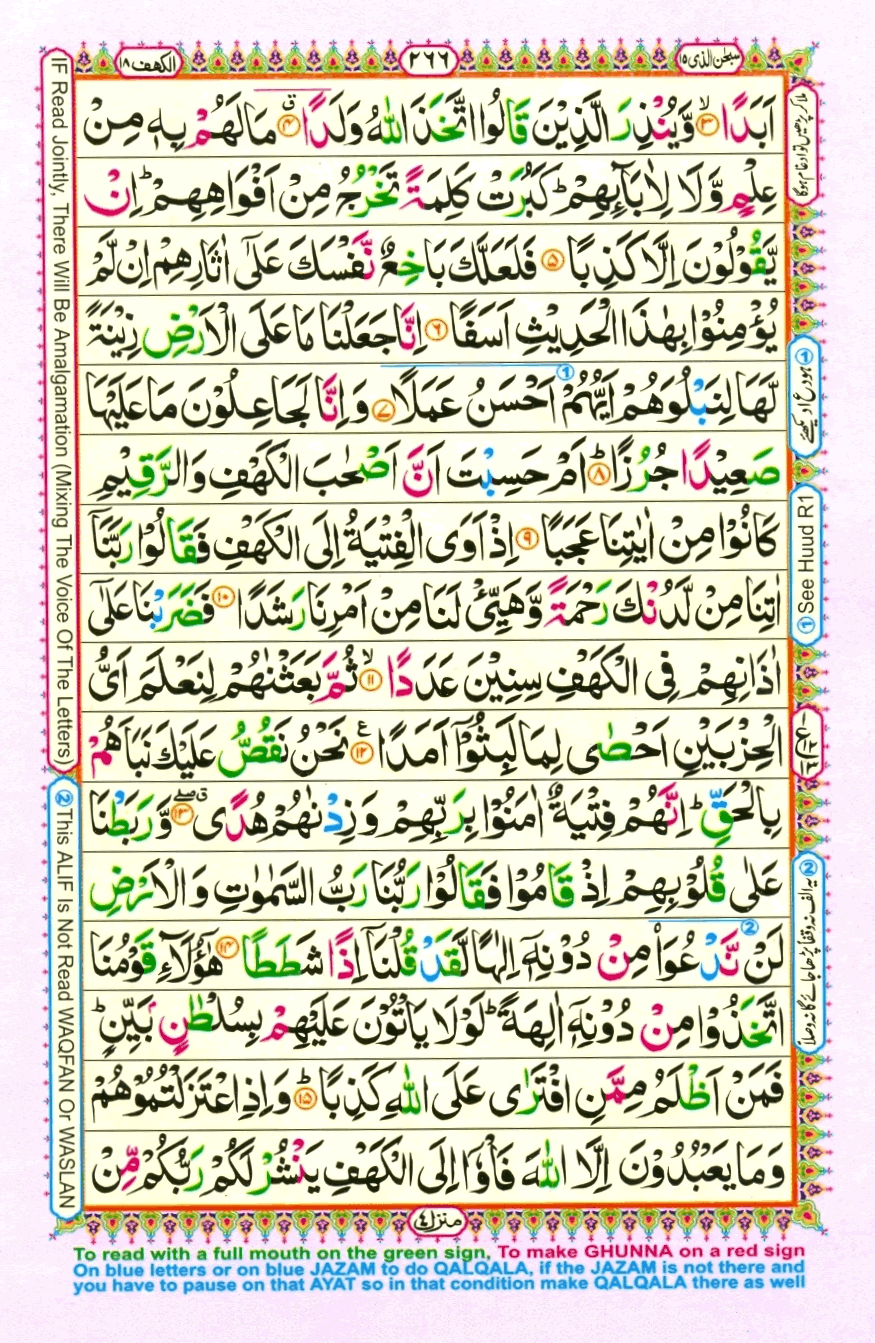 سبحٰن الذی ۱۵
۲۶۶
الکھف ۱۸
اَبَدًا ۙ﴿۳﴾ وَّیُنْذِرَ الَّذِیْنَ قَالُوا اتَّخَذَ اللّٰهُ وَلَدًا ۗ﴿۴﴾ مَا لَهُمْ بِهٖ مِنْ
عِلْمٍ وَّلَا لِاٰبَآىِٕهِمْ ؕ كَبُرَتْ كَلِمَةً تَخْرُجُ مِنْ اَفْوَاهِهِمْ ؕ اِنْ
یَّقُوْلُوْنَ اِلَّا كَذِبًا ﴿۵﴾ فَلَعَلَّكَ بَاخِعٌ نَّفْسَكَ عَلٰۤی اٰثَارِهِمْ اِنْ لَّمْ
یُؤْمِنُوْا بِهٰذَا الْحَدِیْثِ اَسَفًا ﴿۶﴾ اِنَّا جَعَلْنَا مَا عَلَی الْاَرْضِ زِیْنَةً
لَّهَا لِنَبْلُوَهُمْ اَیُّهُمْ ① اَحْسَنُ عَمَلًا ﴿۷﴾ وَ اِنَّا لَجَاعِلُوْنَ مَا عَلَیْهَا
صَعِیْدًا جُرُزًا ؕ﴿۸﴾ اَمْ حَسِبْتَ اَنَّ اَصْحٰبَ الْكَهْفِ وَ الرَّقِیْمِ
كَانُوْا مِنْ اٰیٰتِنَا عَجَبًا ﴿۹﴾ اِذْ اَوَی الْفِتْیَةُ اِلَی الْكَهْفِ فَقَالُوْا رَبَّنَاۤ
اٰتِنَا مِنْ لَّدُنْكَ رَحْمَةً وَّهَیِّئْ لَنَا مِنْ اَمْرِنَا رَشَدًا ﴿۱۰﴾ فَضَرَبْنَا عَلٰۤی
اٰذَانِهِمْ فِی الْكَهْفِ سِنِیْنَ عَدَدًا ۙ﴿۱۱﴾ ثُمَّ بَعَثْنٰهُمْ لِنَعْلَمَ اَیُّ
الْحِزْبَیْنِ اَحْصٰی لِمَا لَبِثُوْۤا اَمَدًا ﴿۱۲﴾ ع نَحْنُ نَقُصُّ عَلَیْكَ نَبَاَهُمْ
بِالْحَقِّ ؕ اِنَّهُمْ فِتْیَةٌ اٰمَنُوْا بِرَبِّهِمْ وَ زِدْنٰهُمْ هُدًی ﴿۱۳﴾ ق صلے وَّ رَبَطْنَا
عَلٰی قُلُوْبِهِمْ اِذْ قَامُوْا فَقَالُوْا رَبُّنَا رَبُّ السَّمٰوٰتِ وَ الْاَرْضِ
لَنْ نَّدْعُوَاۡ ② مِنْ دُوْنِهٖۤ اِلٰهًا لَّقَدْ قُلْنَاۤ اِذًا شَطَطًا ﴿۱۴﴾ هٰۤؤُلَآءِ قَوْمُنَا
اتَّخَذُوْا مِنْ دُوْنِهٖۤ اٰلِهَةً ؕ لَوْ لَا یَاْتُوْنَ عَلَیْهِمْ بِسُلْطٰنٍۭ بَیِّنٍ ؕ
فَمَنْ اَظْلَمُ مِمَّنِ افْتَرٰی عَلَی اللّٰهِ كَذِبًا ؕ﴿۱۵﴾ وَ اِذِ اعْتَزَلْتُمُوْهُمْ
وَ مَا یَعْبُدُوْنَ اِلَّا اللّٰهَ فَاْوٗۤا اِلَی الْكَهْفِ یَنْشُرْ لَكُمْ رَبُّكُمْ مِّنْ
منزل ۴
IF Read Jointly, There Will Be Amalgamation (Mixing The Voice Of The Letters)
② This ALIF Is Not Read WAQFAN Or WASLAN
ملا کر پڑھیں تو ادغام ہوگا
① ھود ع ۱ دیکھئے
① See Huud R1
② یہ الف نہ وقفاً پڑھا جائے گا نہ وصلاً
To read with a full mouth on the green sign, To make GHUNNA on a red sign
On blue letters or on blue JAZAM to do QALQALA, if the JAZAM is not there and
you have to pause on that AYAT so in that condition make QALQALA there as well